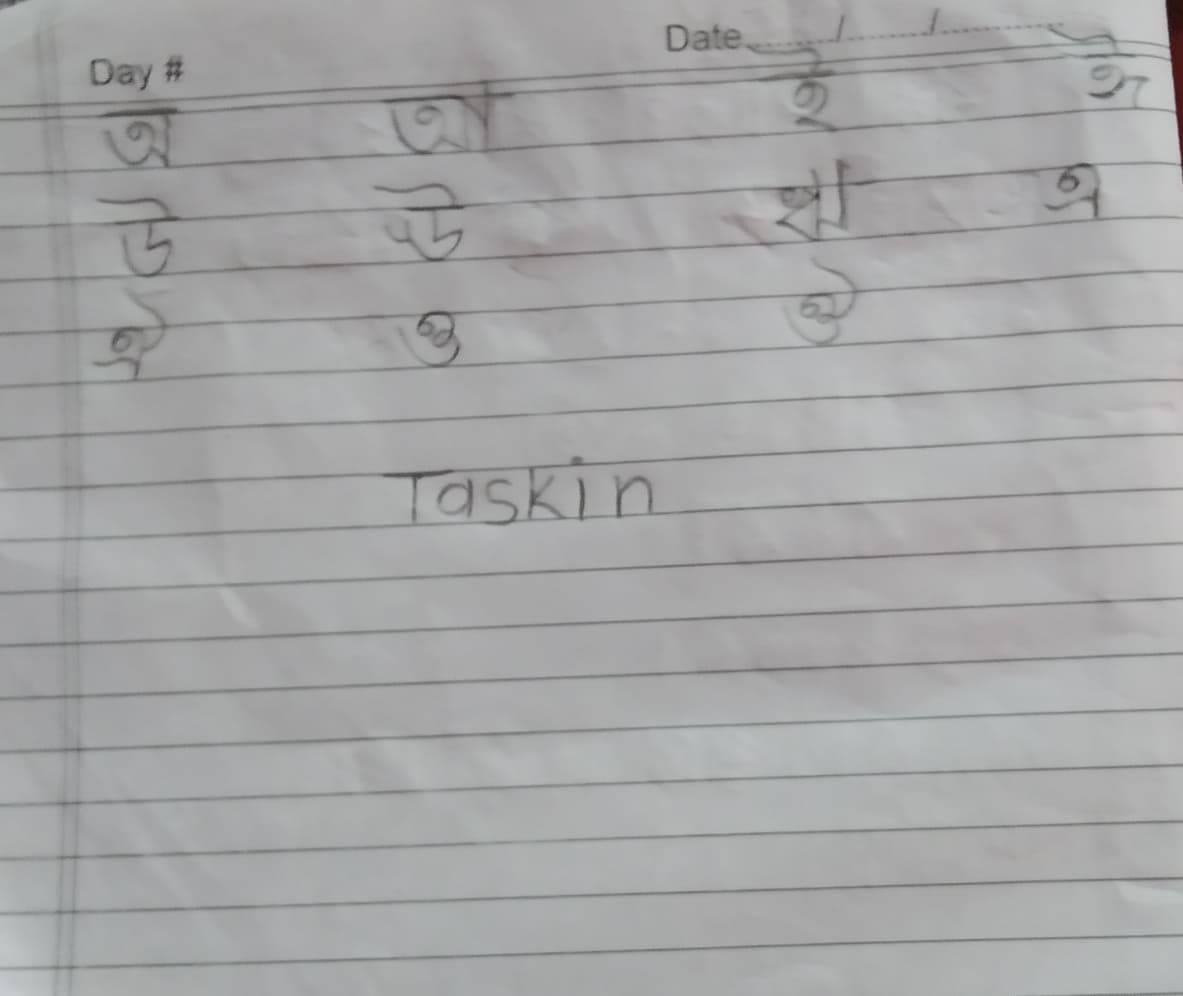 Day # Date....../......./............
অ আ ই ঈ
উ ঊ ঋ এ
ঐ ও ঔ
Taskin